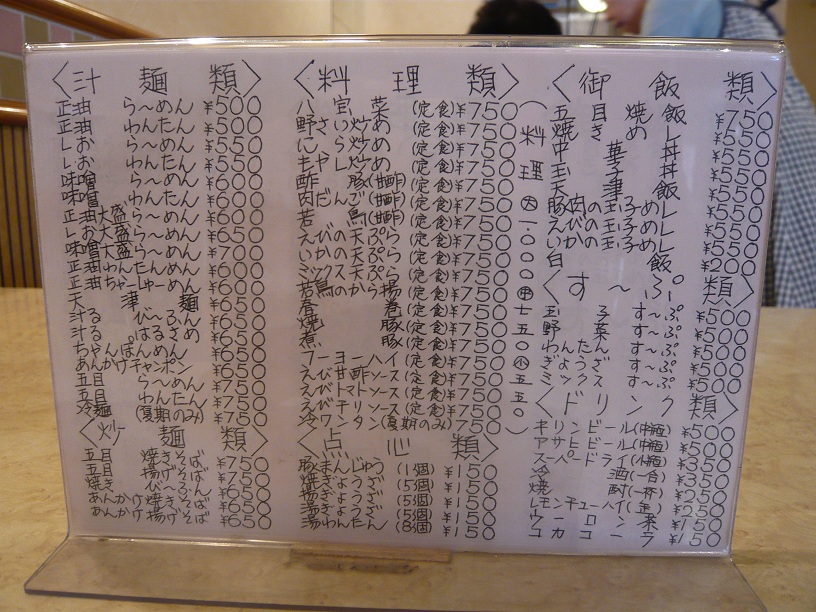 〈汁麺類〉
正油 ら〜めん ¥500
正油 わんたん ¥500
しお ら〜めん ¥550
しお わんたん ¥550
味噌 ら〜めん ¥600
味噌 わんたん ¥600
正油大盛 ら〜めん ¥650
しお大盛 ら〜めん ¥650
味噌大盛 ら〜めん ¥700
正油 わんたんめん ¥600
正油 ちゃーしゅーめん
天津麺 ¥650
汁びーふん ¥650
汁はるさめ ¥650
ちゃんぽんめん ¥650
あんかけチャンポン ¥650
五目 ら〜めん ¥750
五目 わんたん ¥750
冷麺 (夏期のみ) ¥750
〈炒麺類〉
五目焼そば ¥750
五目揚げそば ¥750
焼きびーふん ¥650
あんかけ焼そば ¥650
あんかけ揚げそば ¥650
〈料理類〉
八宝菜 (定食) ¥750
野さい炒め (定食) ¥750
にら炒め (定食) ¥750
もやし炒め (定食) ¥750
酢豚(甘酢) (定食) ¥750
肉だんご(甘酢) (定食) ¥750
若鳥(甘酢) (定食) ¥750
えび天ぷら (定食) ¥750
いかの天ぷら (定食) ¥750
ミックス天ぷら (定食) ¥750
若鳥のから揚 (定食) ¥750
春巻 (定食) ¥750
焼豚 (定食) ¥750
煮豚 (定食) ¥750
フーヨーハイ (定食) ¥750
えび甘酢ソース (定食) ¥750
えびトマトソース (定食) ¥750
えびチリソース (定食) ¥750
冷ワンタン (夏期のみ) ¥750
〈点心類〉
豚まんじゅう (1個) ¥150
焼ぎょうざ (5個) ¥150
揚ぎょうざ (5個) ¥150
湯ぎょうざ (5個) ¥150
揚わんたん (8個) ¥150
(料理 大 一.〇〇〇 中 七五〇 小 五五〇)
〈御飯類〉
五目焼飯 ¥750
焼めし ¥550
中華丼 ¥550
天津飯 ¥550
豚肉の玉子めし ¥550
えびの玉子めし ¥550
かに
白飯 ¥200
〈す〜ぷ類〉
玉子す〜ぷ ¥500
野菜す〜ぷ ¥500
わんたんす〜ぷ ¥500
ぎょうざす〜ぷ ¥500
〈ドリンク類〉
キリンビール(中瓶) ¥500
アサヒビール(中瓶) ¥500
スーパードライ(小瓶) ¥350
冷酒 (一合) ¥350
焼酎 (一杯) ¥250
レモンチューハイ ¥250
ウーロン茶 ¥150
コカコーラ ¥150